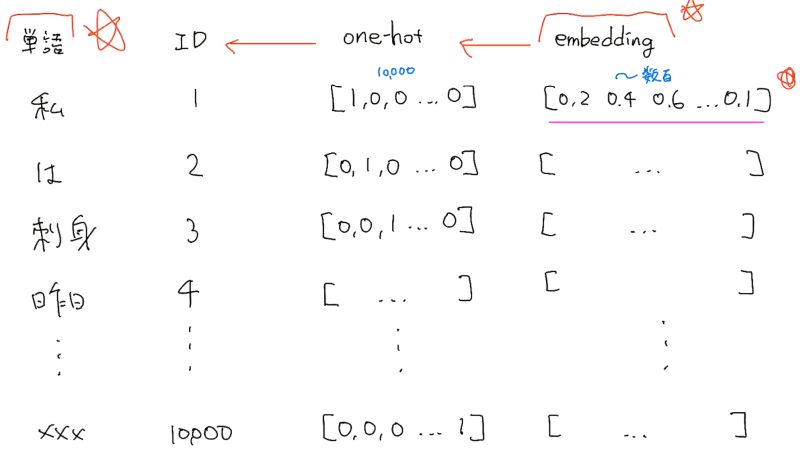 単語 ID one-hot embedding
10,000 ~数百
私 1 [1,0,0 ... 0] [0.2 0.4 0.6 ...0.1] ①
は 2 [0,1,0 ... 0] [ ... ]
刺身 3 [0,0,1 ... 0] [ ... ]
昨日 4 [ ... ] [ ]
xxx 10,000 [0,0,0 ... 1] [ ... ]